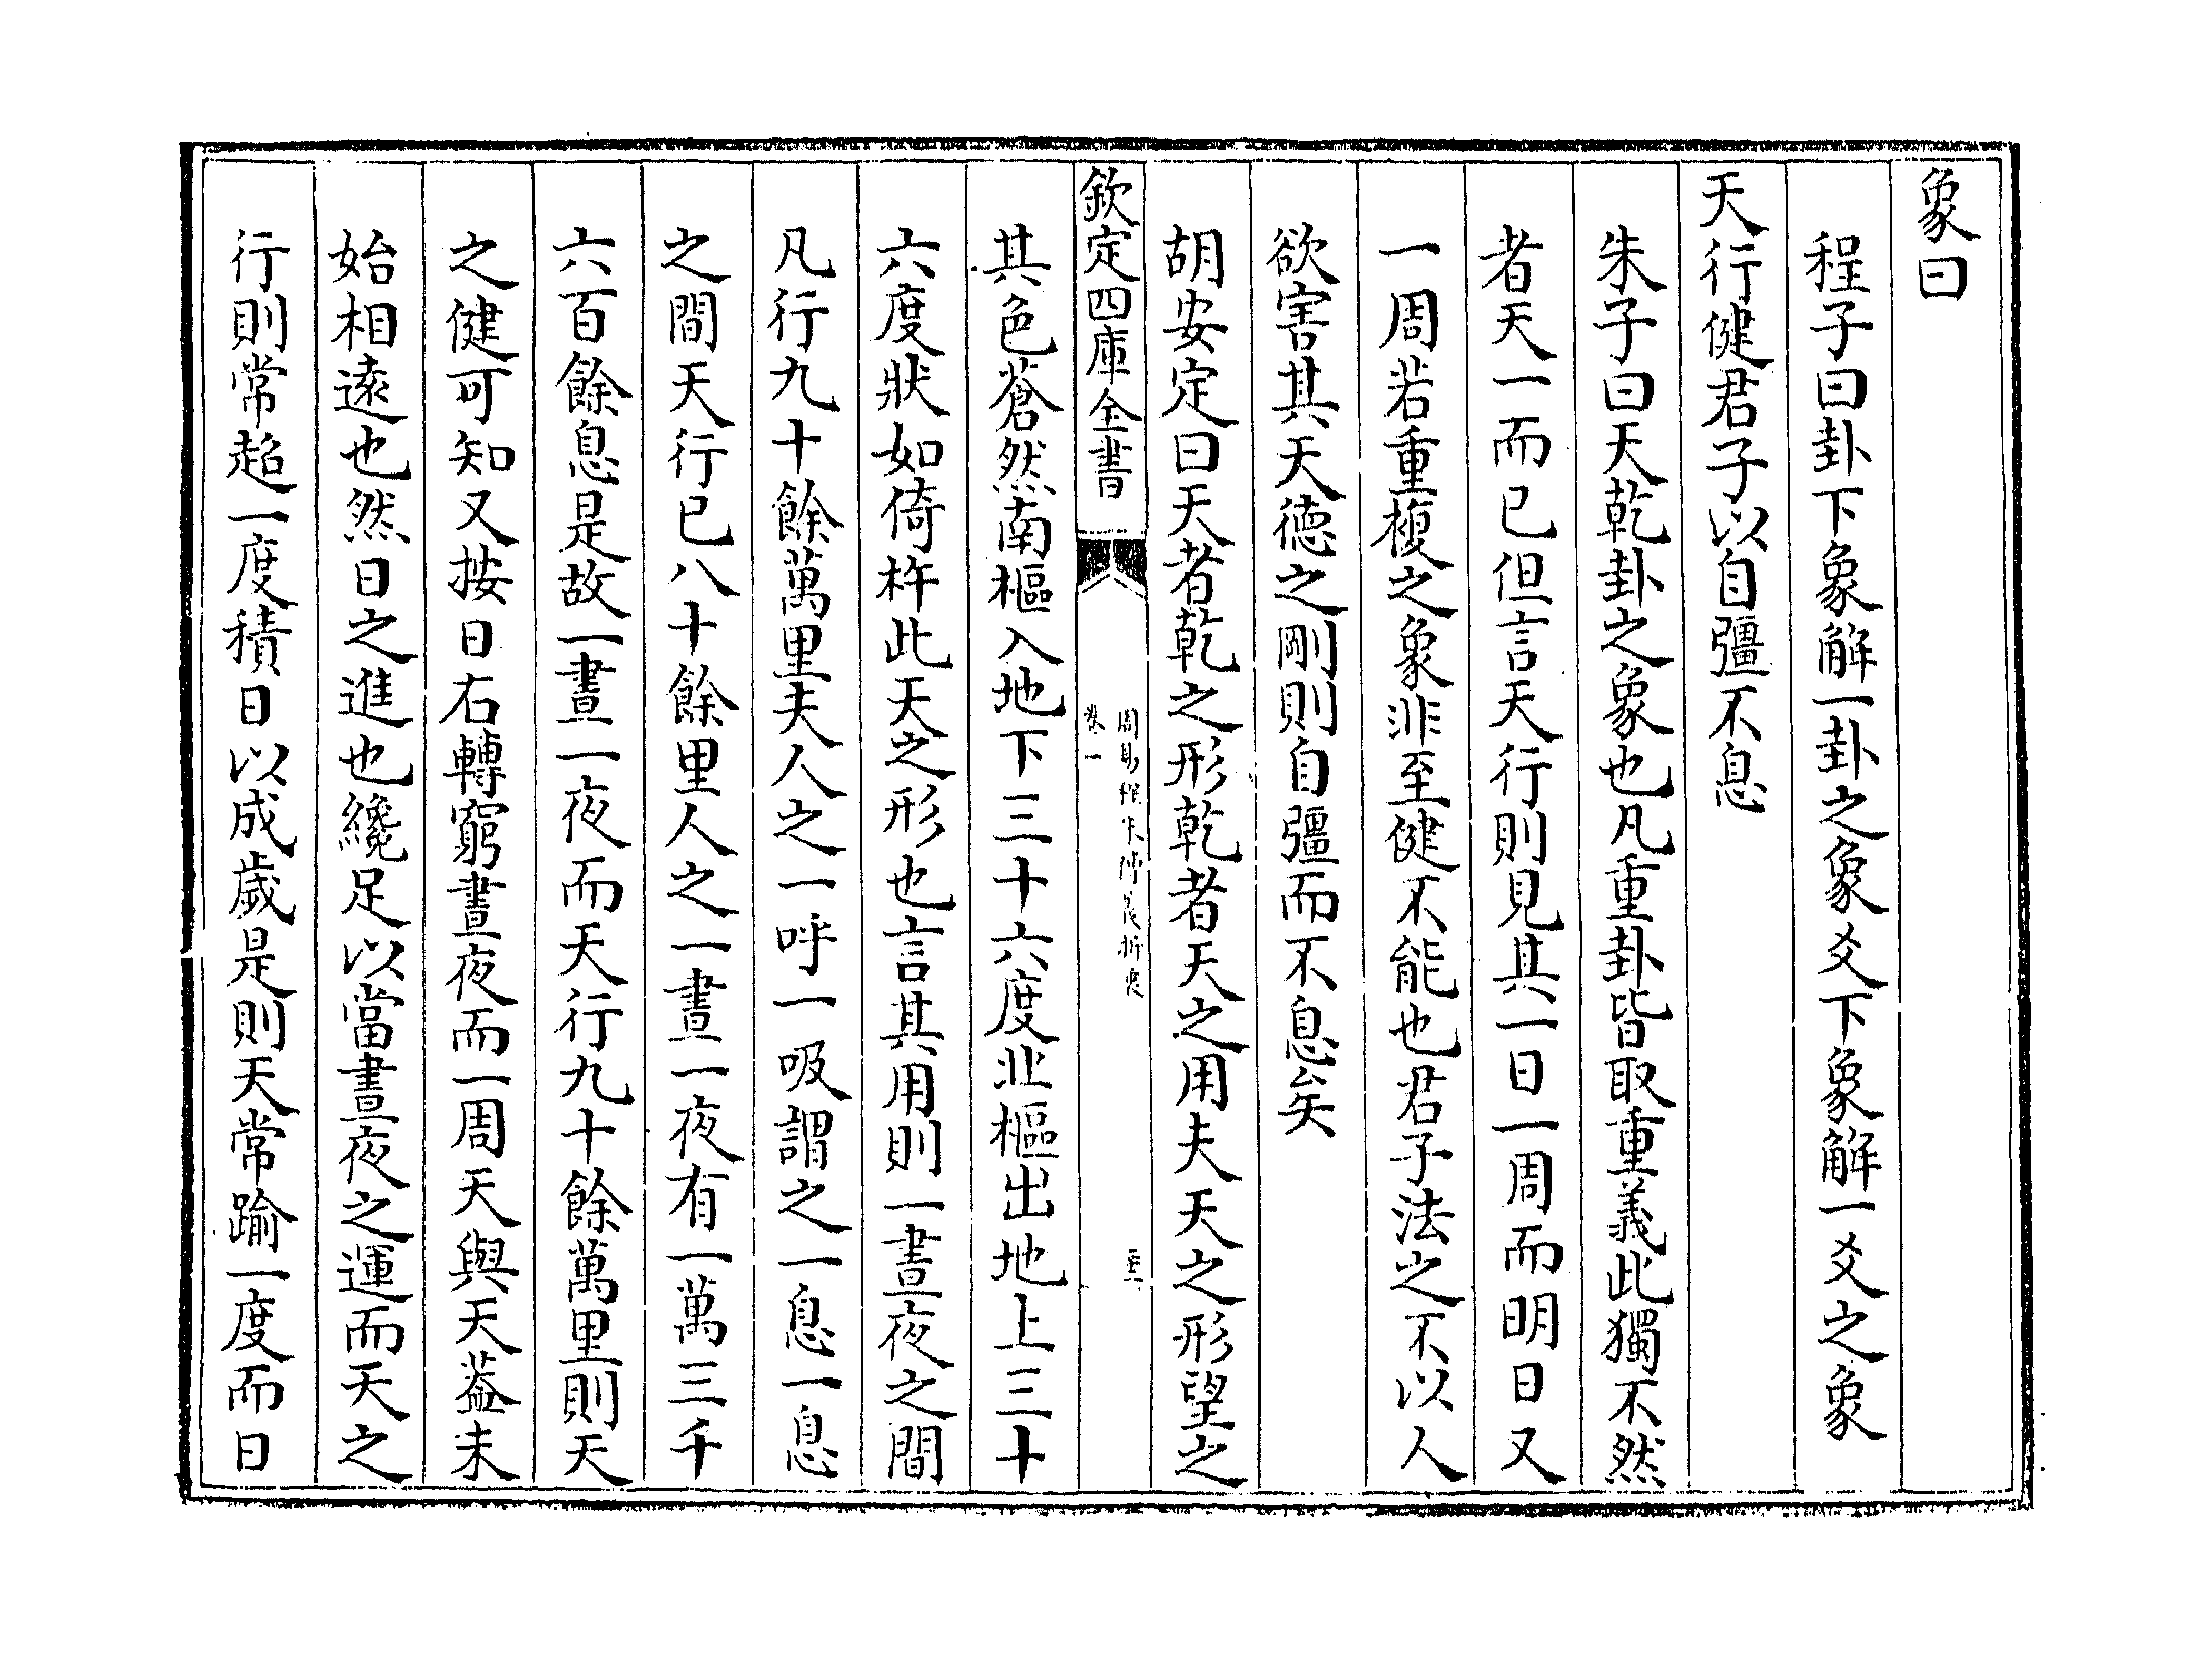 象曰
程子曰卦下象解一卦之象爻下象解一爻之象
天行健君子以自彊不息
朱子曰天乾卦之象也凡重卦皆取重義此獨不然
者天一而已但言天行則見其一日一周而明日又
一周若重複之象非至健不能也君子法之不以人
欲害其天德之剛則自彊而不息矣
胡安定曰天者乾之形乾者天之用夫天之形望之
欽定四庫全書
周易程朱傳義折衷
卷一
其色蒼然南樞入地下三十六度北樞出地上三十
六度狀如倚杵此天之形也言其用則一晝夜之間
凡行九十餘萬里夫人之一呼一吸謂之一息一息
之間天行已八十餘里人之一晝一夜有一萬三千
六百餘息是故一晝一夜而天行九十餘萬里則天
之健可知又按日右轉窮晝夜而一周天與天葢未
始相遠也然日之進也纔足以當晝夜之運而天之
行則常超一度積日以成歲是則天常踰一度而日